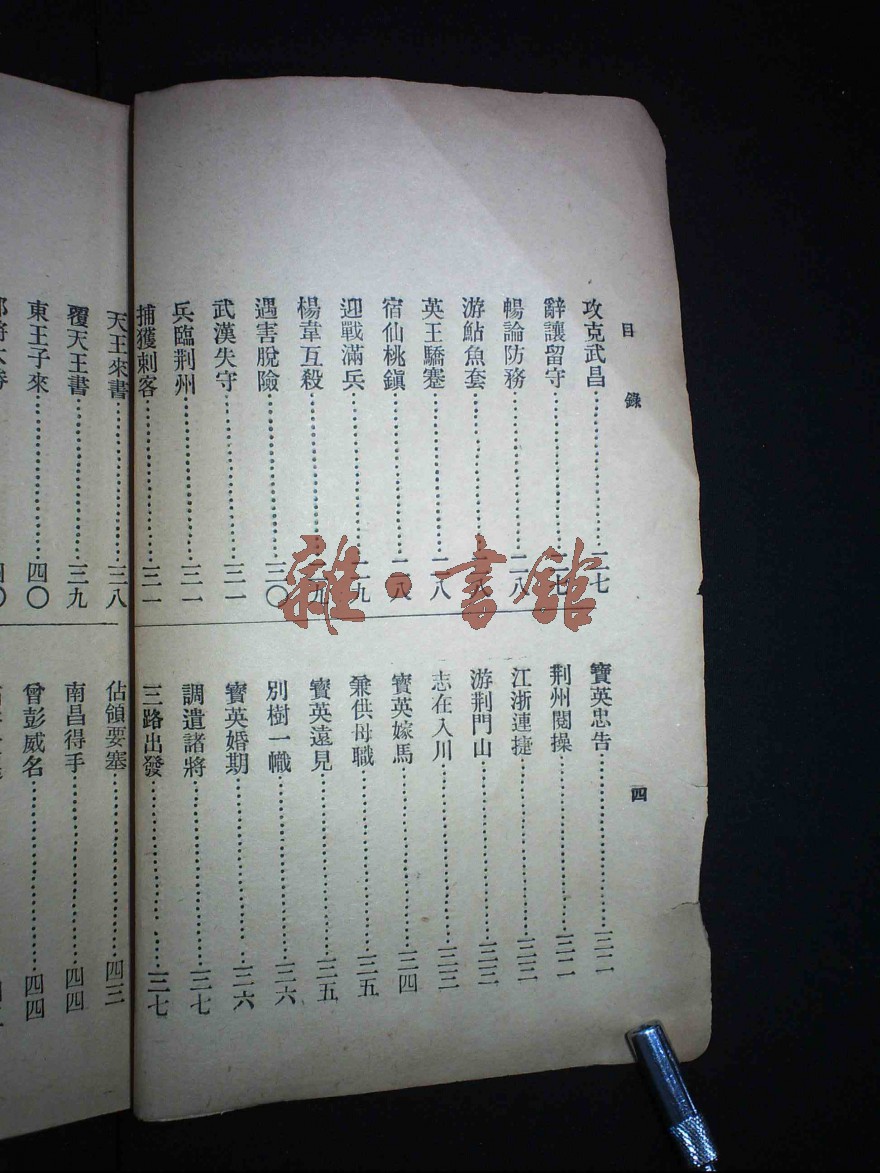 目錄
四
攻克武昌……二七
辭讓留守……二七
暢論防務……二八
游鮎魚套……二八
英王驕蹇……二八
宿仙桃鎮……二八
迎戰滿兵……二九
楊韋互殺……二九
遇害脫險……三〇
武漢失守……三一
兵臨荆州……三一
捕獲刺客……三一
寶英忠告……三二
荆州閱操……三二
江浙連捷……三三
游荆門山……三三
志在入川……三三
寶英嫁馬……三四
兼供母職……三五
寶英遠見……三五
別樹一幟……三六
寶英婚期……三六
調遣諸將……三七
三路出發……三七
天王來書……三八
覆天王書……三九
東王子來……四〇
佔領要塞……四三
南昌得手……四四
曾彭威名……四四
雜·書館